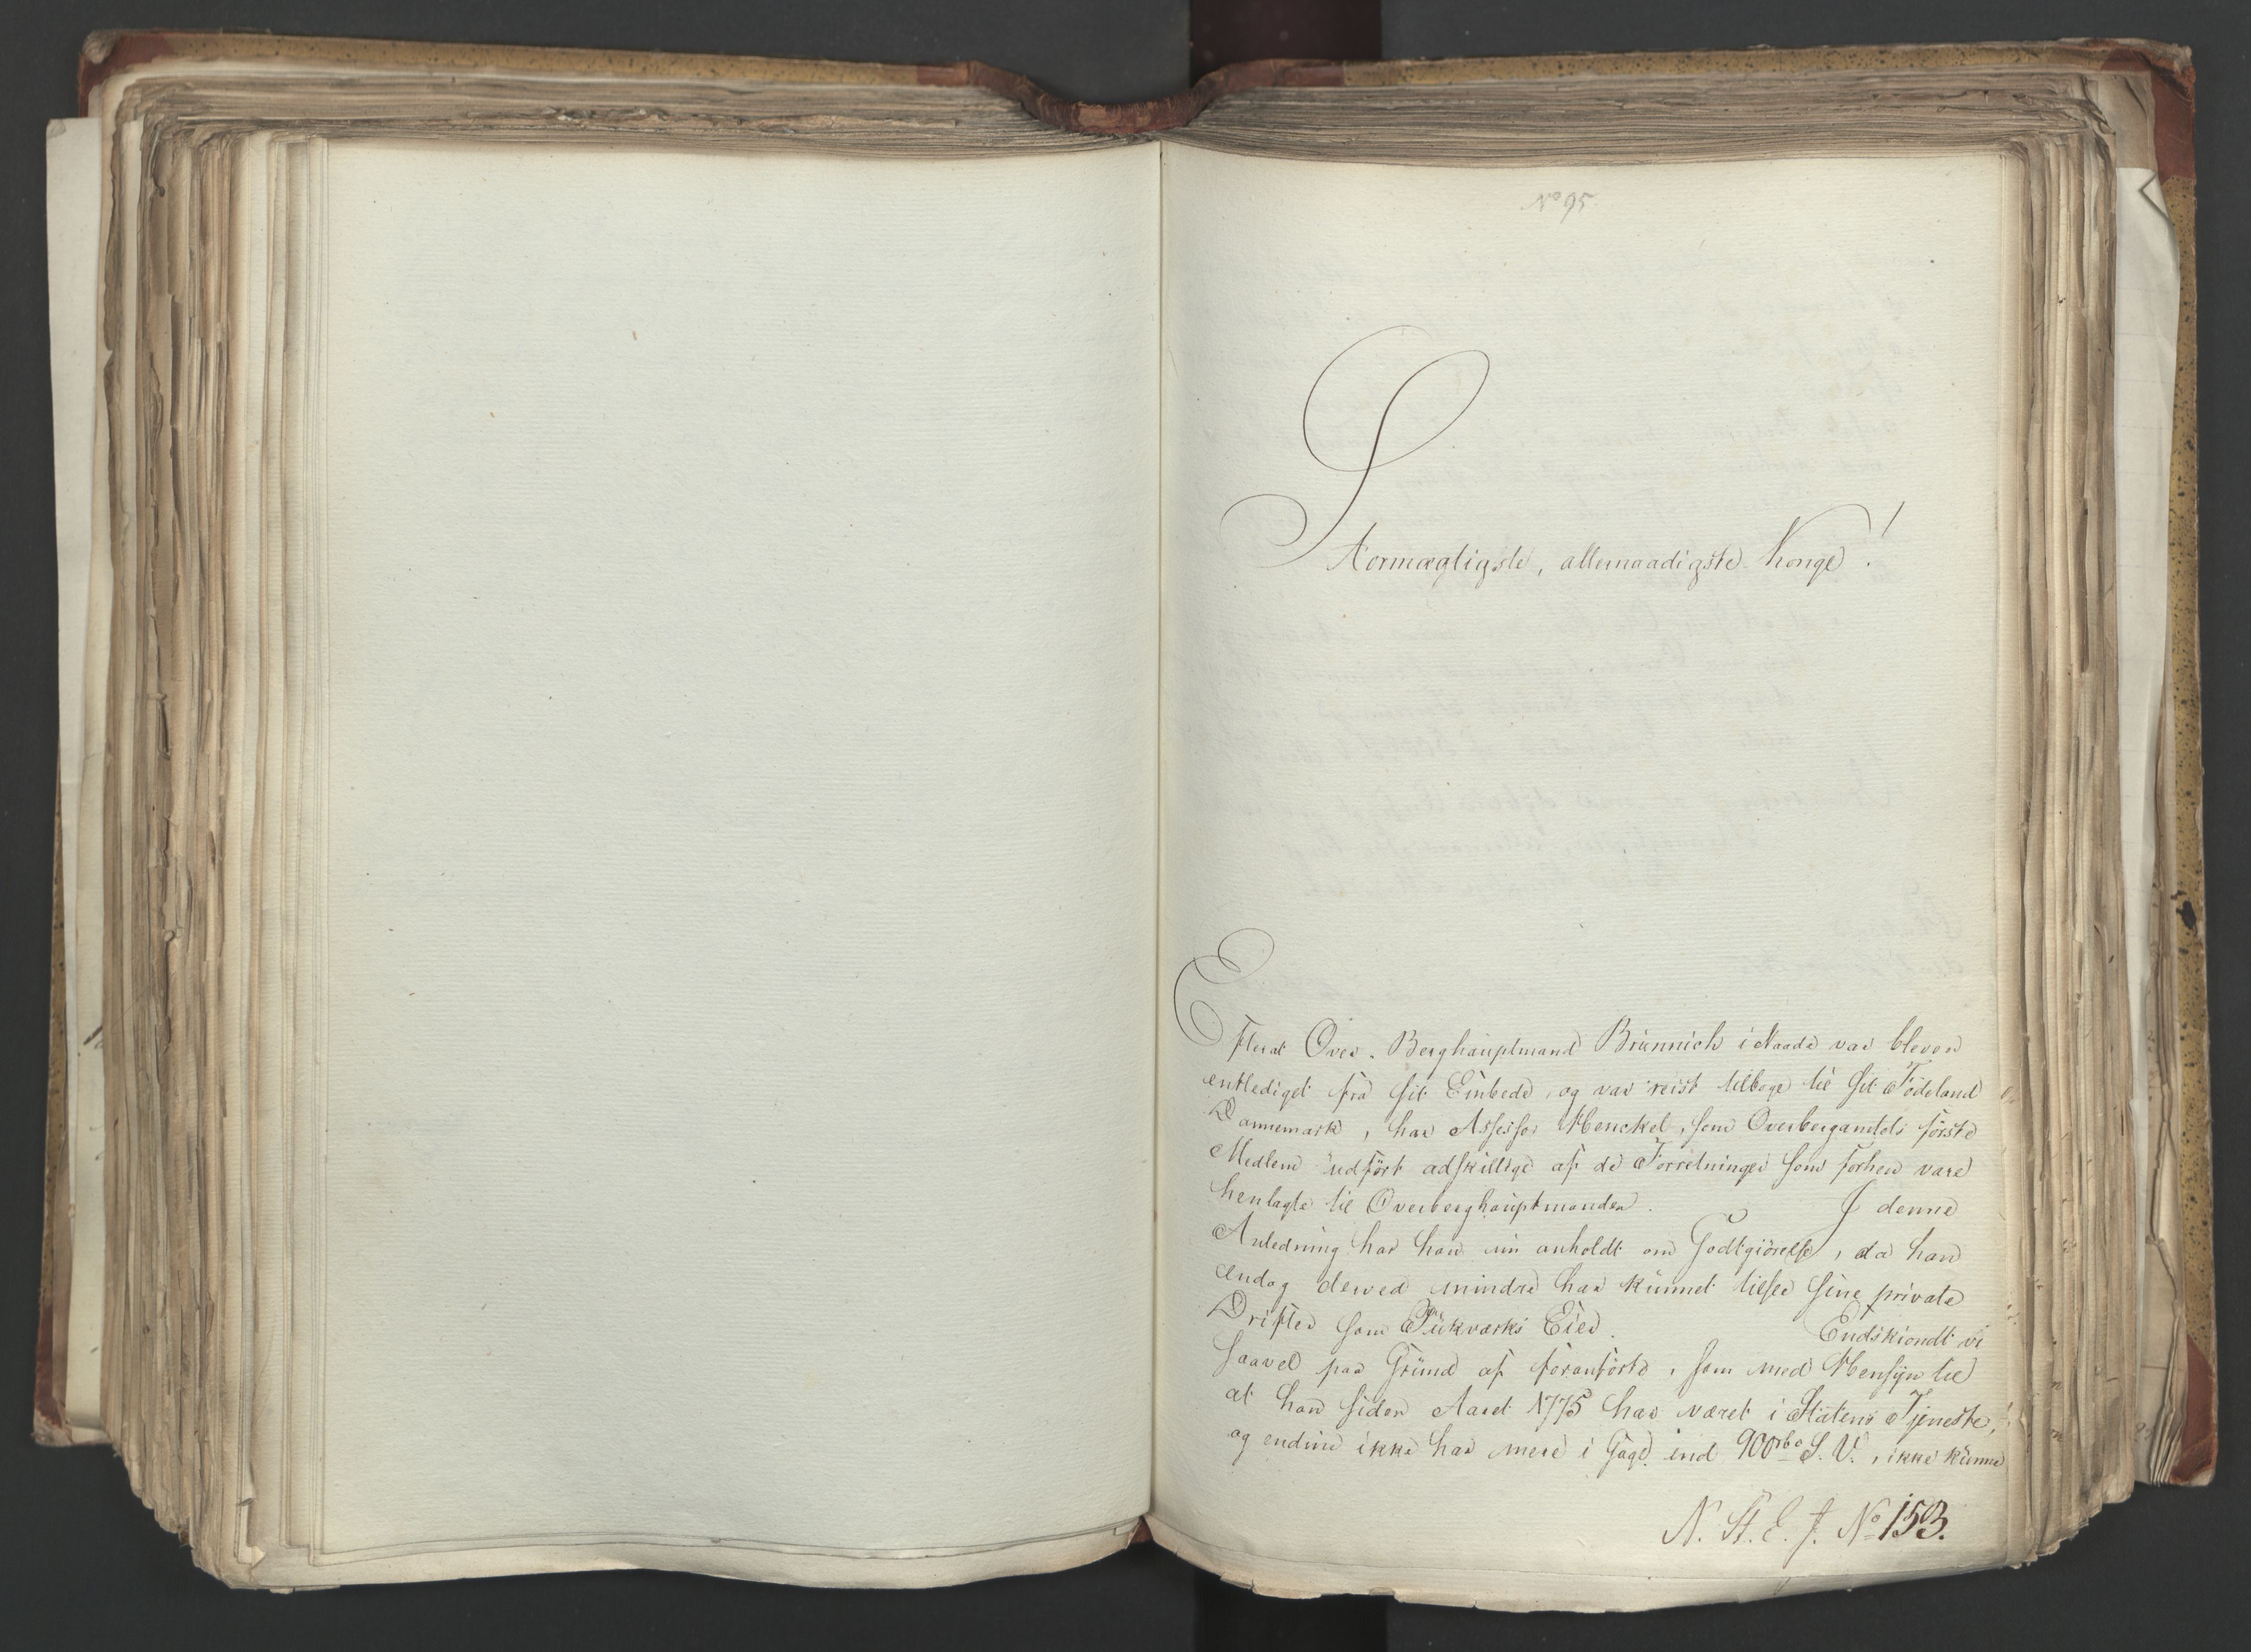 No 95
Stormægtigste, allernaadigste Konge!
Efterat Over-Berghauptmand Brünnich i Naade var bleven
entlediget fra sit Embede, og var reist tilbage til sit Födeland
Dannemark, har Assessor Henckel, som Overbergamtets förste
Medlem udfört adskillige af de Forretninger som forhen vare
henlagte til Overberghauptmanden. I denne
Anledning har han nu anholdt om Godtgiörelse, da han
endog derved mindre har kunnet tilsee sine private
Drifter som Brükværks Eier. Endskiöndt vi
saavel paa Grund af foranförte, som med Hensyn til
at han siden Aaret 1775 har været i Statens Tjeneste,
og endnu ikke har mere i Gage end 900 rbd S. V., ikke kunne
N. St. E. J. No 153.